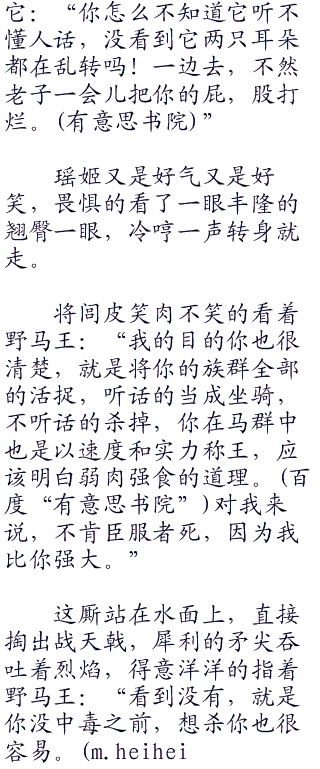 它：“你怎么不知道它听不
懂人话，没看到它两只耳朵
都在乱转吗！一边去，不然
老子一会儿把你的屁，股打
烂。(有意思书院)”
瑶姬又是好气又是好
笑，畏惧的看了一眼丰隆的
翘臀一眼，冷哼一声转身就
走。
将闾皮笑肉不笑的看着
野马王：“我的目的你也很
清楚，就是将你的族群全部
的活捉，听话的当成坐骑，
不听话的杀掉，你在马群中
也是以速度和实力称王，应
该明白弱肉强食的道理。(百
度“有意思书院”)对我来
说，不肯臣服者死，因为我
比你强大。”
这厮站在水面上，直接
掏出战天戟，犀利的矛尖吞
吐着烈焰，得意洋洋的指着
野马王：“看到没有，就是
你没中毒之前，想杀你也很
容易。(m.heihei